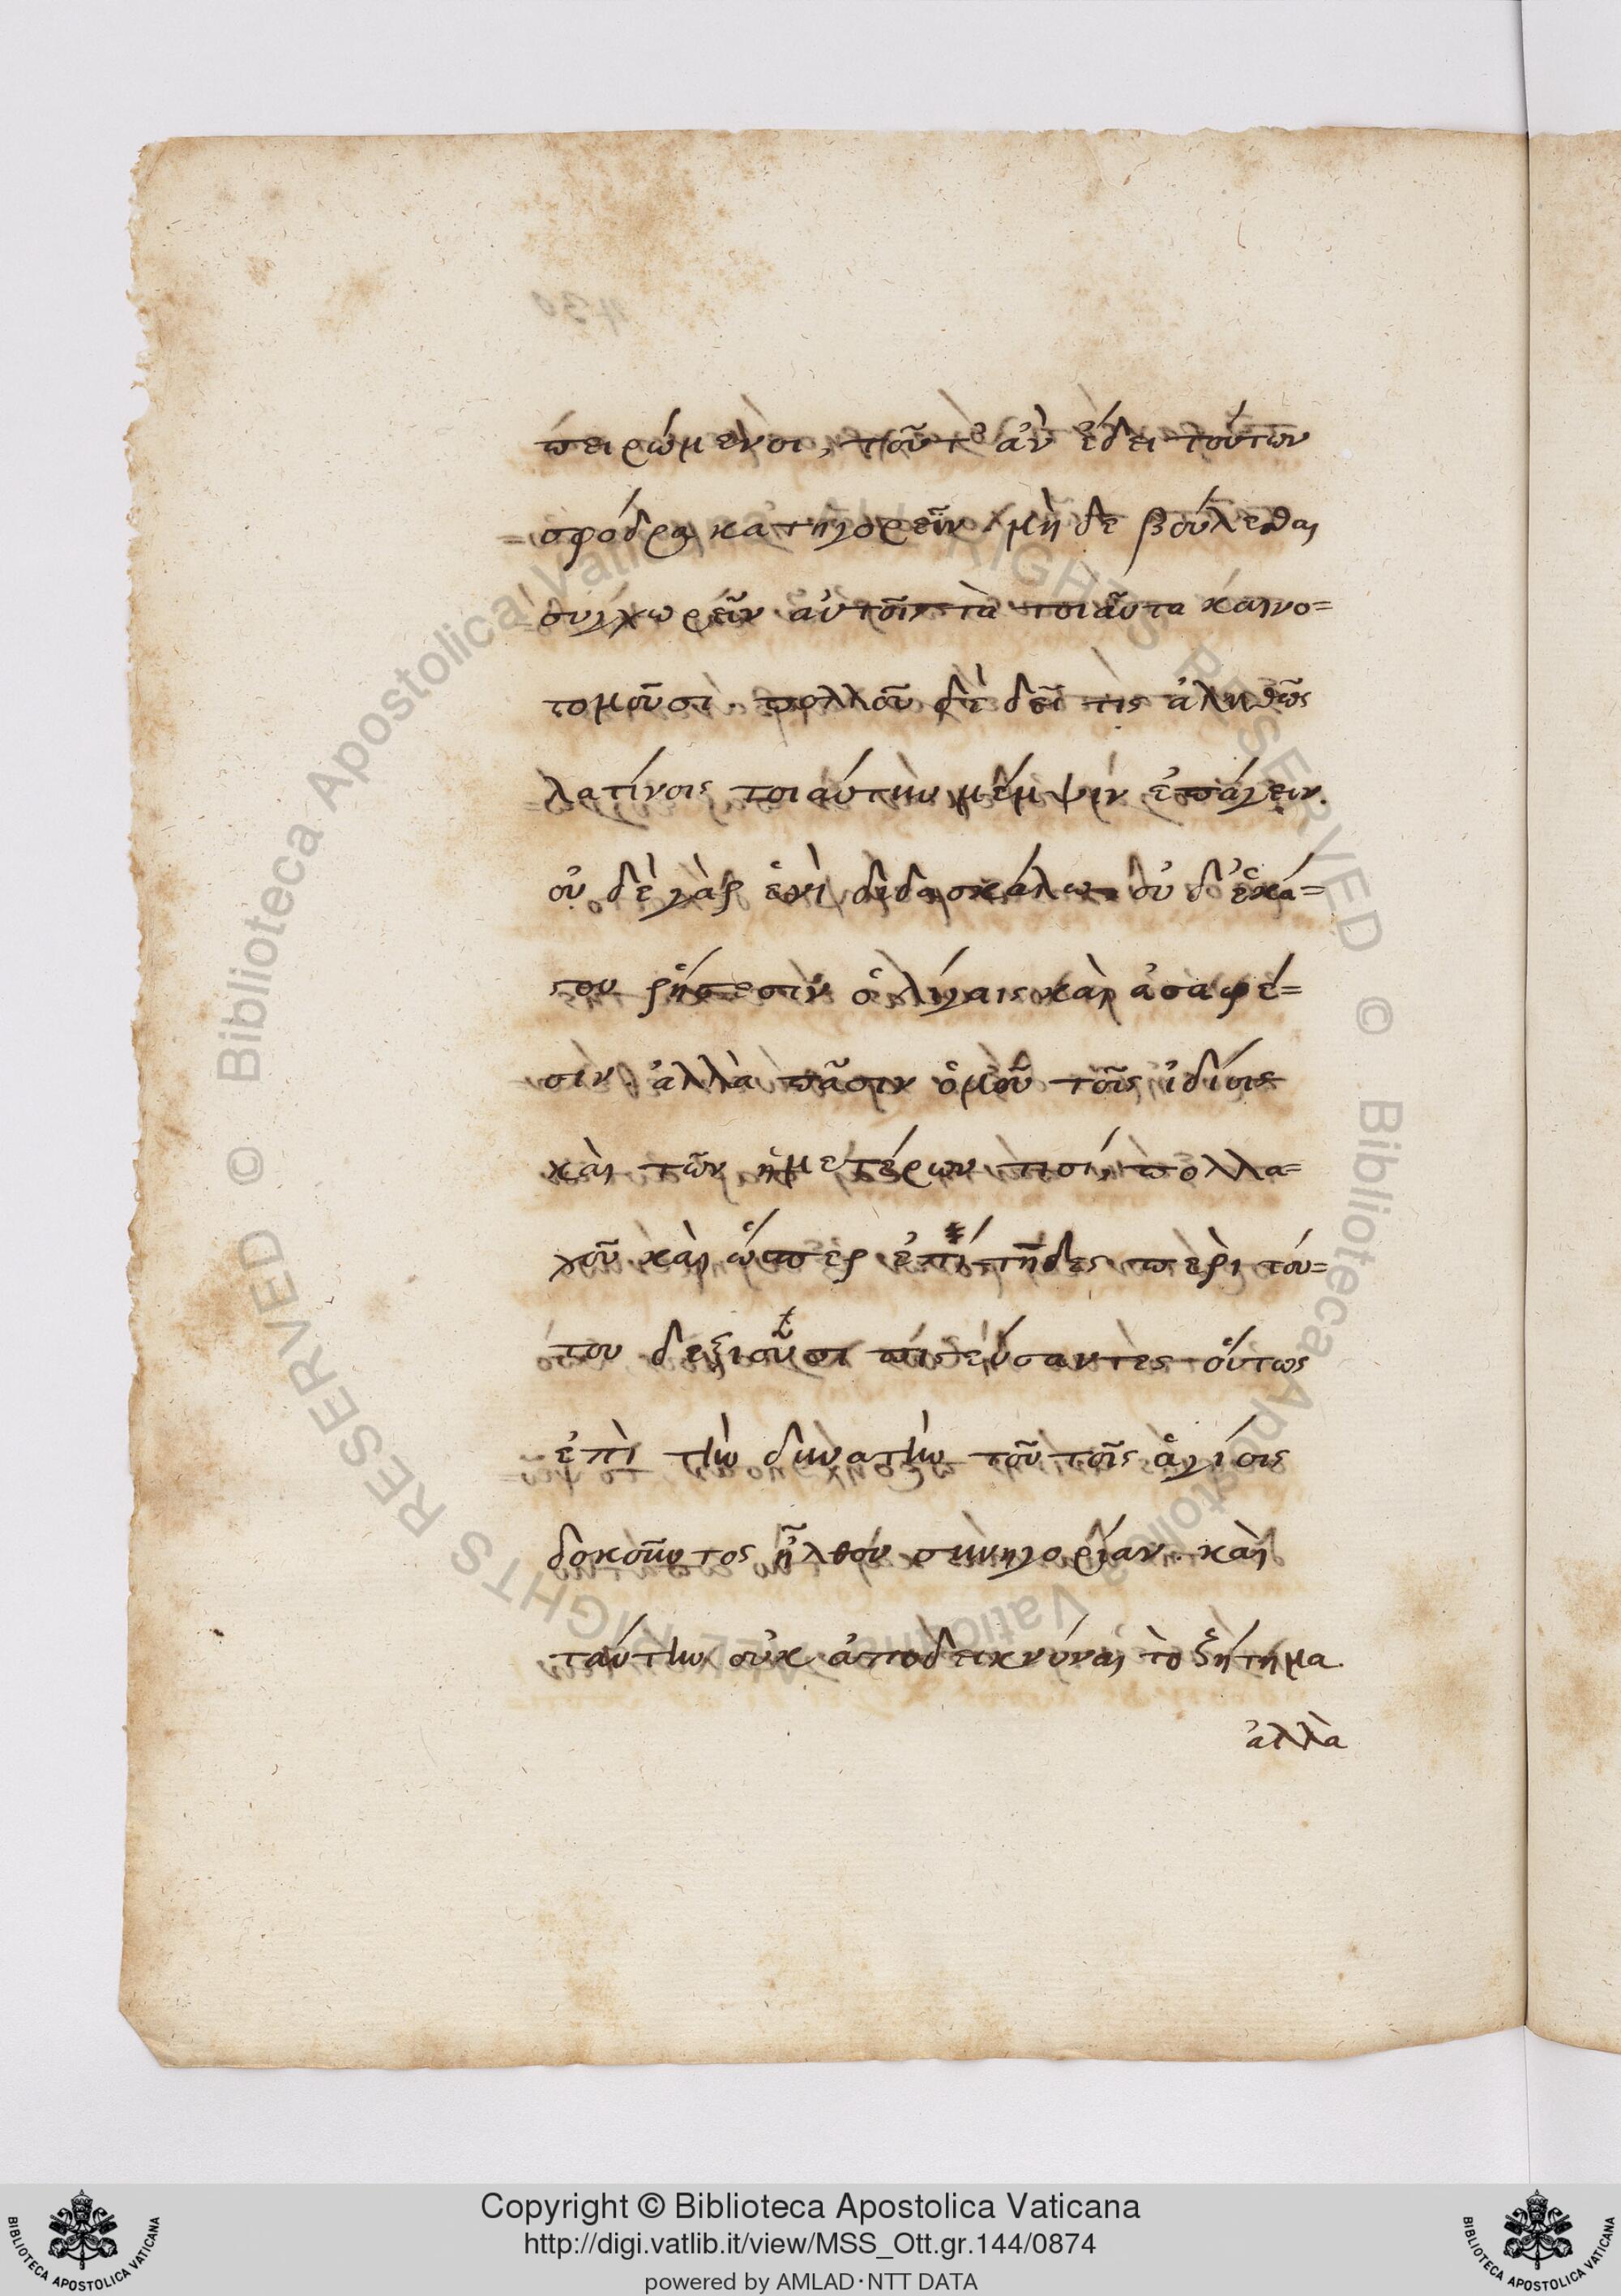 πειρώμενοι, τοῦτ' ἂν ἔδει τούτων
σφόδρα κατηγορεῖν. μὴ δε βούλεσθαι
συγχωρεῖν αὐτοῖς τὰ τοιαῦτα καινο=
τομοῦσι. πολλοῦ δὲ δεῖ τις ἀληθῶς
λατίνοις τοιαύτην μέμψιν ἐπάγειν.
οὐ δὲ γὰρ ἑνὶ διδασκάλω οὐ δ' ἑκά=
στου ῥήσεσιν ὀλίγαις καὶ ἀσαφέ=
σιν. ἀλλὰ πᾶσιν ὁμοῦ τοῖς ἰδίοις
καὶ τῶν ἡμετέρων τισί, πολλα=
χοῦ καὶ ὥσπερ ἐπίτηδες περὶ τού=
του δεξιοῦσι πιστεύσαντες οὕτως
ἐπὶ τὴν δυνατὴν τοῦ τοῖς ἁγίοις
δοκοῦντος ἦλθον συνηγορίαν. καὶ
ταύτην οὐκ ἀποδεικνύναι τὸ ζήτημα.
ἀλλὰ
Copyright © Biblioteca Apostolica Vaticana
http://digi.vatlib.it/view/MSS_Ott.gr.144/0874
powered by AMLAD·NTT DATA